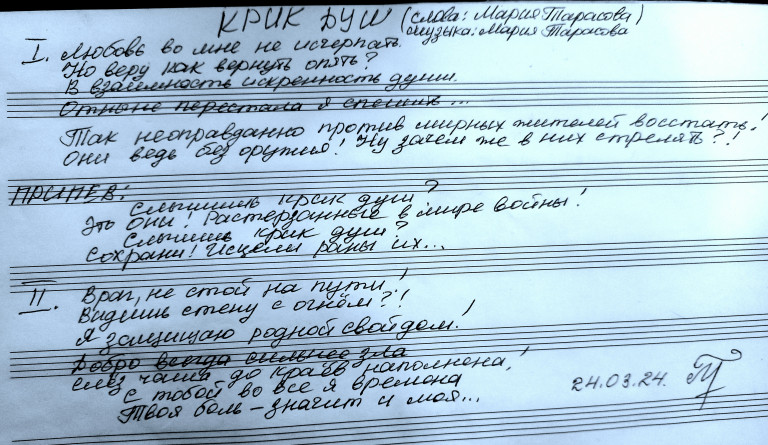 КРИК ДУШ (слова: Мария Тарасова)
музыка: Мария Тарасова
I. Любовь во мне не исчерпать.
Но веру как вернуть опять?
В взаемность искренность души.
Отныне перестала я спешить...
Так неоправданно против мирных жителей восстать!
Они ведь без оружия! Ну зачем же в них стрелять?!
ПРИПЕВ:
Слышишь крик душ?
Это они! Растерзанные в мире войны!
Слышишь крик душ?
Сохрани! Исцели раны их...
II. Враг, не стой на пути!
Видишь стену с огнём?!
Я защищаю родной свой дом!
Добро всегда сильнее зла
Слёз чаша до краёв наполнена!
С тобой во все я времена
Твоя боль - значит и моя...
24.03.24.